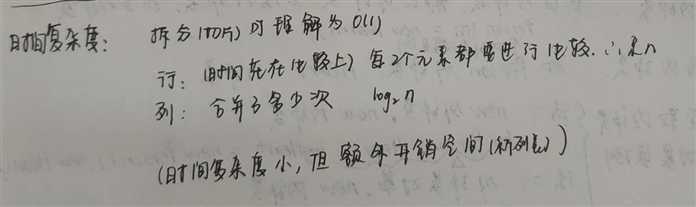 时间复杂度: 拆分(切片)可理解为O(1)
行: (时间花在比较上) 每2个元素都要进行比较. ∴是n
列: 合并了多少次 log₂n
(时间复杂度小, 但额外开销空间(新列表))